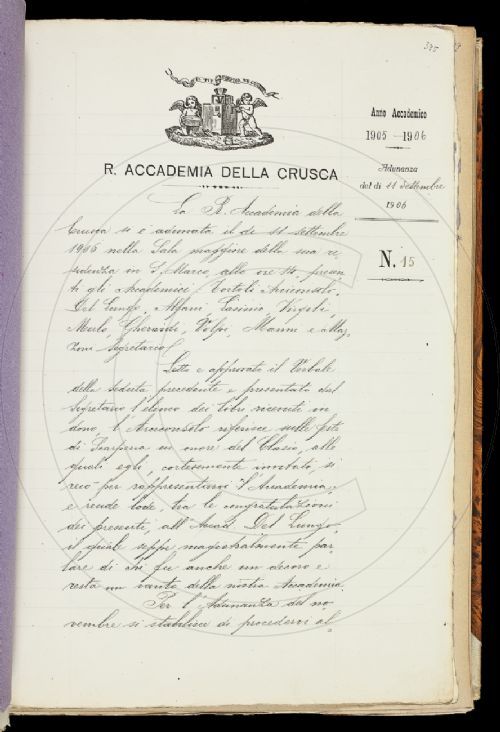 345
R. ACCADEMIA DELLA CRUSCA
Anno Accademico
1905-1906
Adunanza
del dì 11 Settembre
1906
N. 15
La R. Accademia della
Crusca si è adunata il dì 11 settembre
1906 nella Sala maggiore della sua re-
sidenza in S. Marco, alle ore 14, presen-
ti gli Accademici: Tortoli Arciconsolo,
Del Lungo, Alfani, Tasinio Virgili,
Merlo, Gherardi, Volpi, Manni e Maz-
zoni Segretario.
Letto e approvato il Verbale
della seduta precedente e presentato dal
Segretario l'elenco dei libri ricevuti in
dono, l'Arciconsolo riferisce sulle feste
di Scarperia in onore del Clasio, alle
quali egli, cortesemente invitato, si
recò per rappresentarvi l'Accademia;
e rende lode, tra le congratulazioni
dei presenti, all'Accad. Del Lungo,
il quale seppe magistralmente par-
lare di chi fu anche un decoro e
resta un vanto della nostra Accademia.
Per l'Adunanza del no-
vembre si stabilisce di procedervi al-